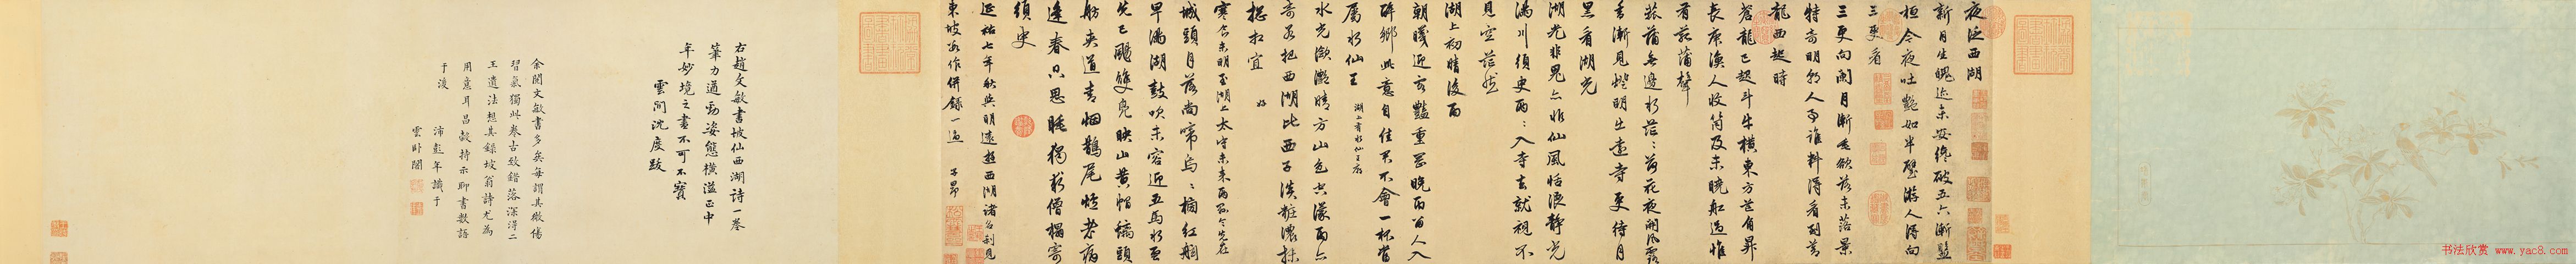 夜泛西湖
新月生魄迹未安纔破五六漸盤
桓今夜吐艷如半璧遊人得向
三更看
三更向闌月漸垂欲落未落景
特奇明朝人事誰料得看到蒼
龍西起時
蒼龍已起斗牛橫東方芒角昇
長庚漁人收筒及未曉船過惟
有菰蒲聲
菰蒲無邊水茫茫荷花夜開風露
香漸見燈明出遠寺更待月
黑看湖光
湖光非鬼亦非仙風恬浪靜光
滿川須臾兩兩入寺去就視不
見空茫然
湖上初晴後雨
朝曦迎客艷重岡晚雨留人入
醉鄉此意自佳君不會一杯當
屬水仙王 湖上有水仙王廟
水光瀲灩晴方山色空濛雨亦
奇若把西湖比西子淡粧濃抹
總相宜 好
寒食未明至湖上太守未來兩縣令先在
城頭月落尚啼烏烏榜紅舷
早滿湖鼓吹未容迎五馬水雲
先已颺雙鳧映山黃帽螭頭
舫夾道青烟鵲尾爐老病
逢春只思睡獨求僧榻寄
須臾
延祐七年秋與明遠遊西湖諸名刹見
東坡舊作併錄一過 子昂
右趙文敏書坡仙西湖詩一卷
筆力遒勁姿態橫溢正中
年妙境之書不可不寶
雲間沈度跋
余閱文敏書多矣每謂其微傷
習氣獨此卷古致錯落深得二
王遺法想其錄坡翁詩尤為
用意耳昌縠持示聊書數語
于後
沛彭年識于
雲卧閣
书法欣赏 www.yac8.com